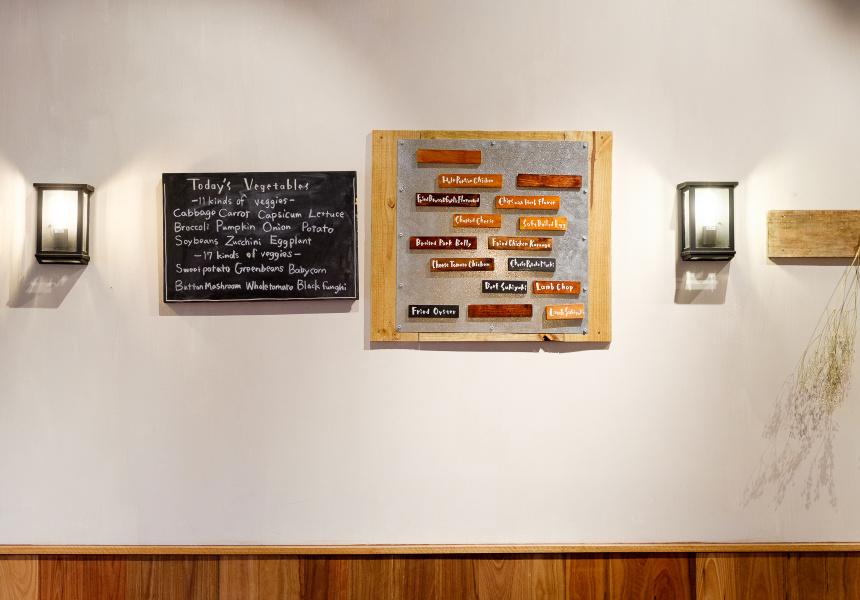 Today's Vegetables
-11 kinds of veggies-
Cabbage Carrot Capsicum Lettuce
Broccoli Pumpkin Onion Potato
Soybeans Zucchini Eggplant
-17 kinds of veggies-
Sweet potato Greenbeans Babycorn
Button Mushroom Wholetomato Black Funghi
Chicken
Chips w.a Herb Flavor
Cheese
Soft Boiled Egg
Boiled Pork Belly
Fried Chicken Karaage
Cheese Tomato Chicken
Beef Sukiyaki
Lamb Chop
Fried Oyster
Lamb Sukiyaki